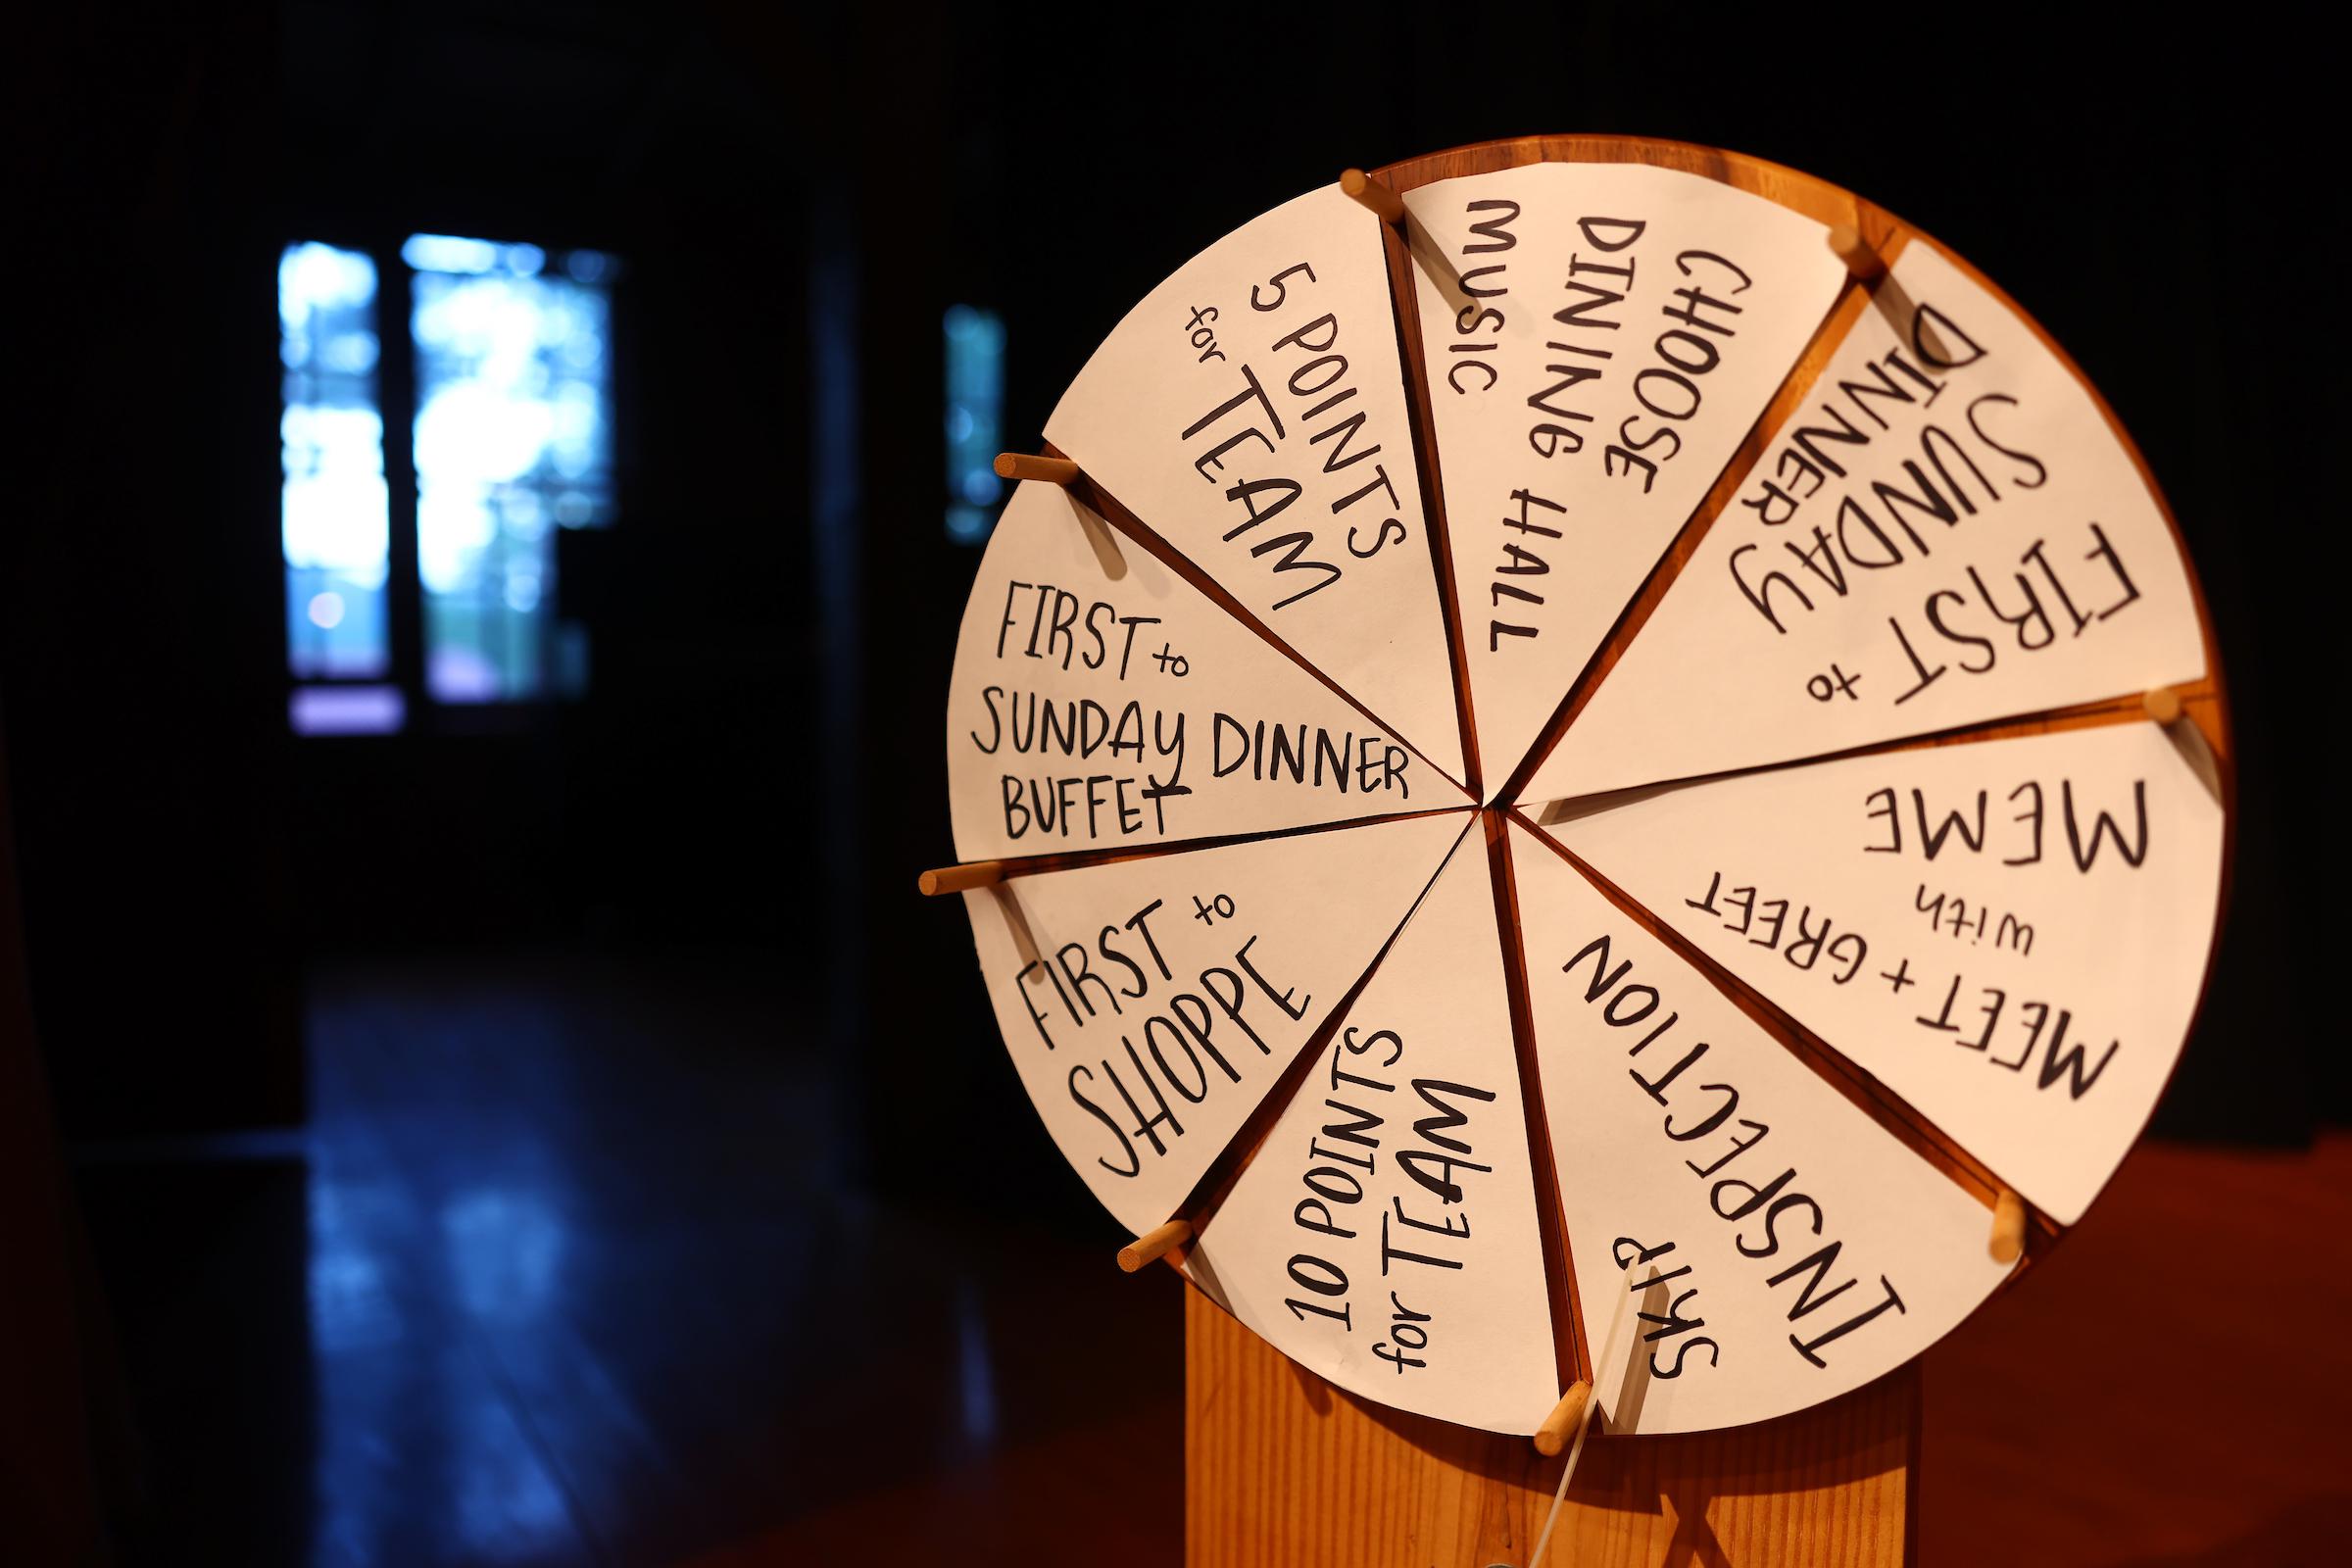 CHOOSE
DINING HALL
MUSIC
FIRST to
SUNDAY
DINNER
MEET + GREET
with
MEME
SKIP
INSPECTION
10 POINTS
for TEAM
FIRST to
SHOPPE
FIRST to
SUNDAY DINNER
BUFFET
5 POINTS
for TEAM